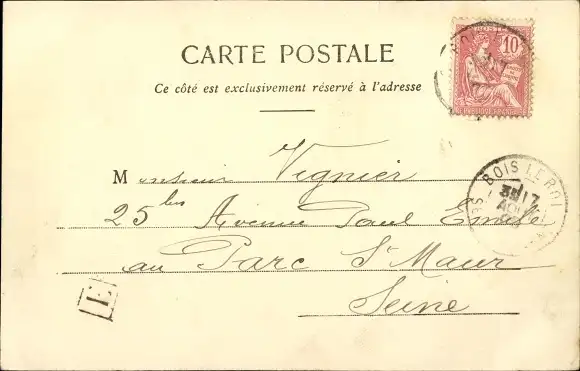 CARTE POSTALE
Ce côté est exclusivement réservé à l'adresse
10
Monsieur Vignier
25 bis Avenue Paul Emile
au Parc St Maur
Seine
BOIS LE ROI
AOU
E